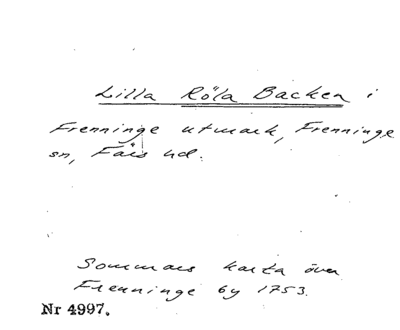 Lilla Röla Backen i
Frenninge utmark, Frenninge
sn, Färs hd.
Sommars karta över
Frenninge by 1753.
Nr 4997.